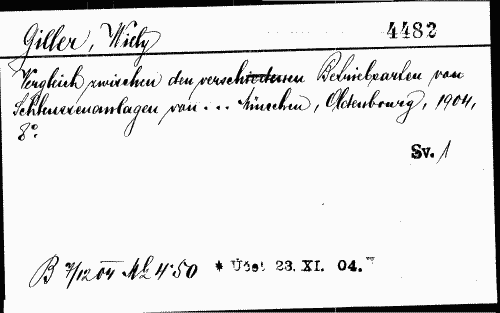 Giller, Willy 4482
Vergleich zwischen den verschiedenen Betriebsarten von
Schleusenanlagen von ... München, Oldenbourg, 1904,
8°.
Sv. 1
B 7/12 04 M 4·50 * Usel 23. XI. 04.